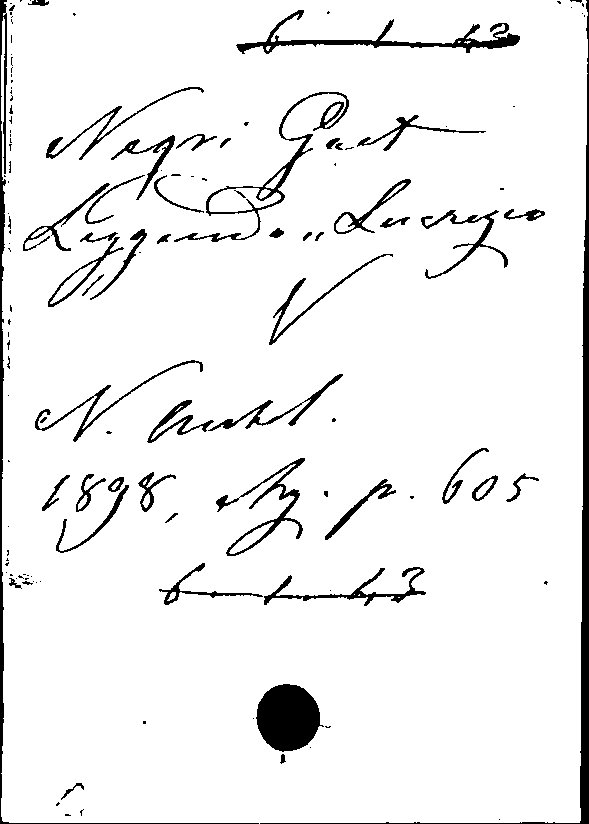 6 1 43
Negri Gaet
Leggendo „ Lucrezio
V
N. Antol.
1898, Ag. p. 605
6 1 43